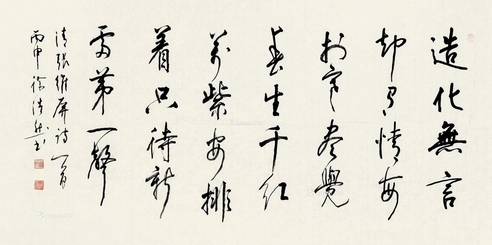 造化無言
却有情每
於寒盡覺
春生千紅
萬紫安排
着只待新
雷第一聲
清張維屏詩一首
丙申徐